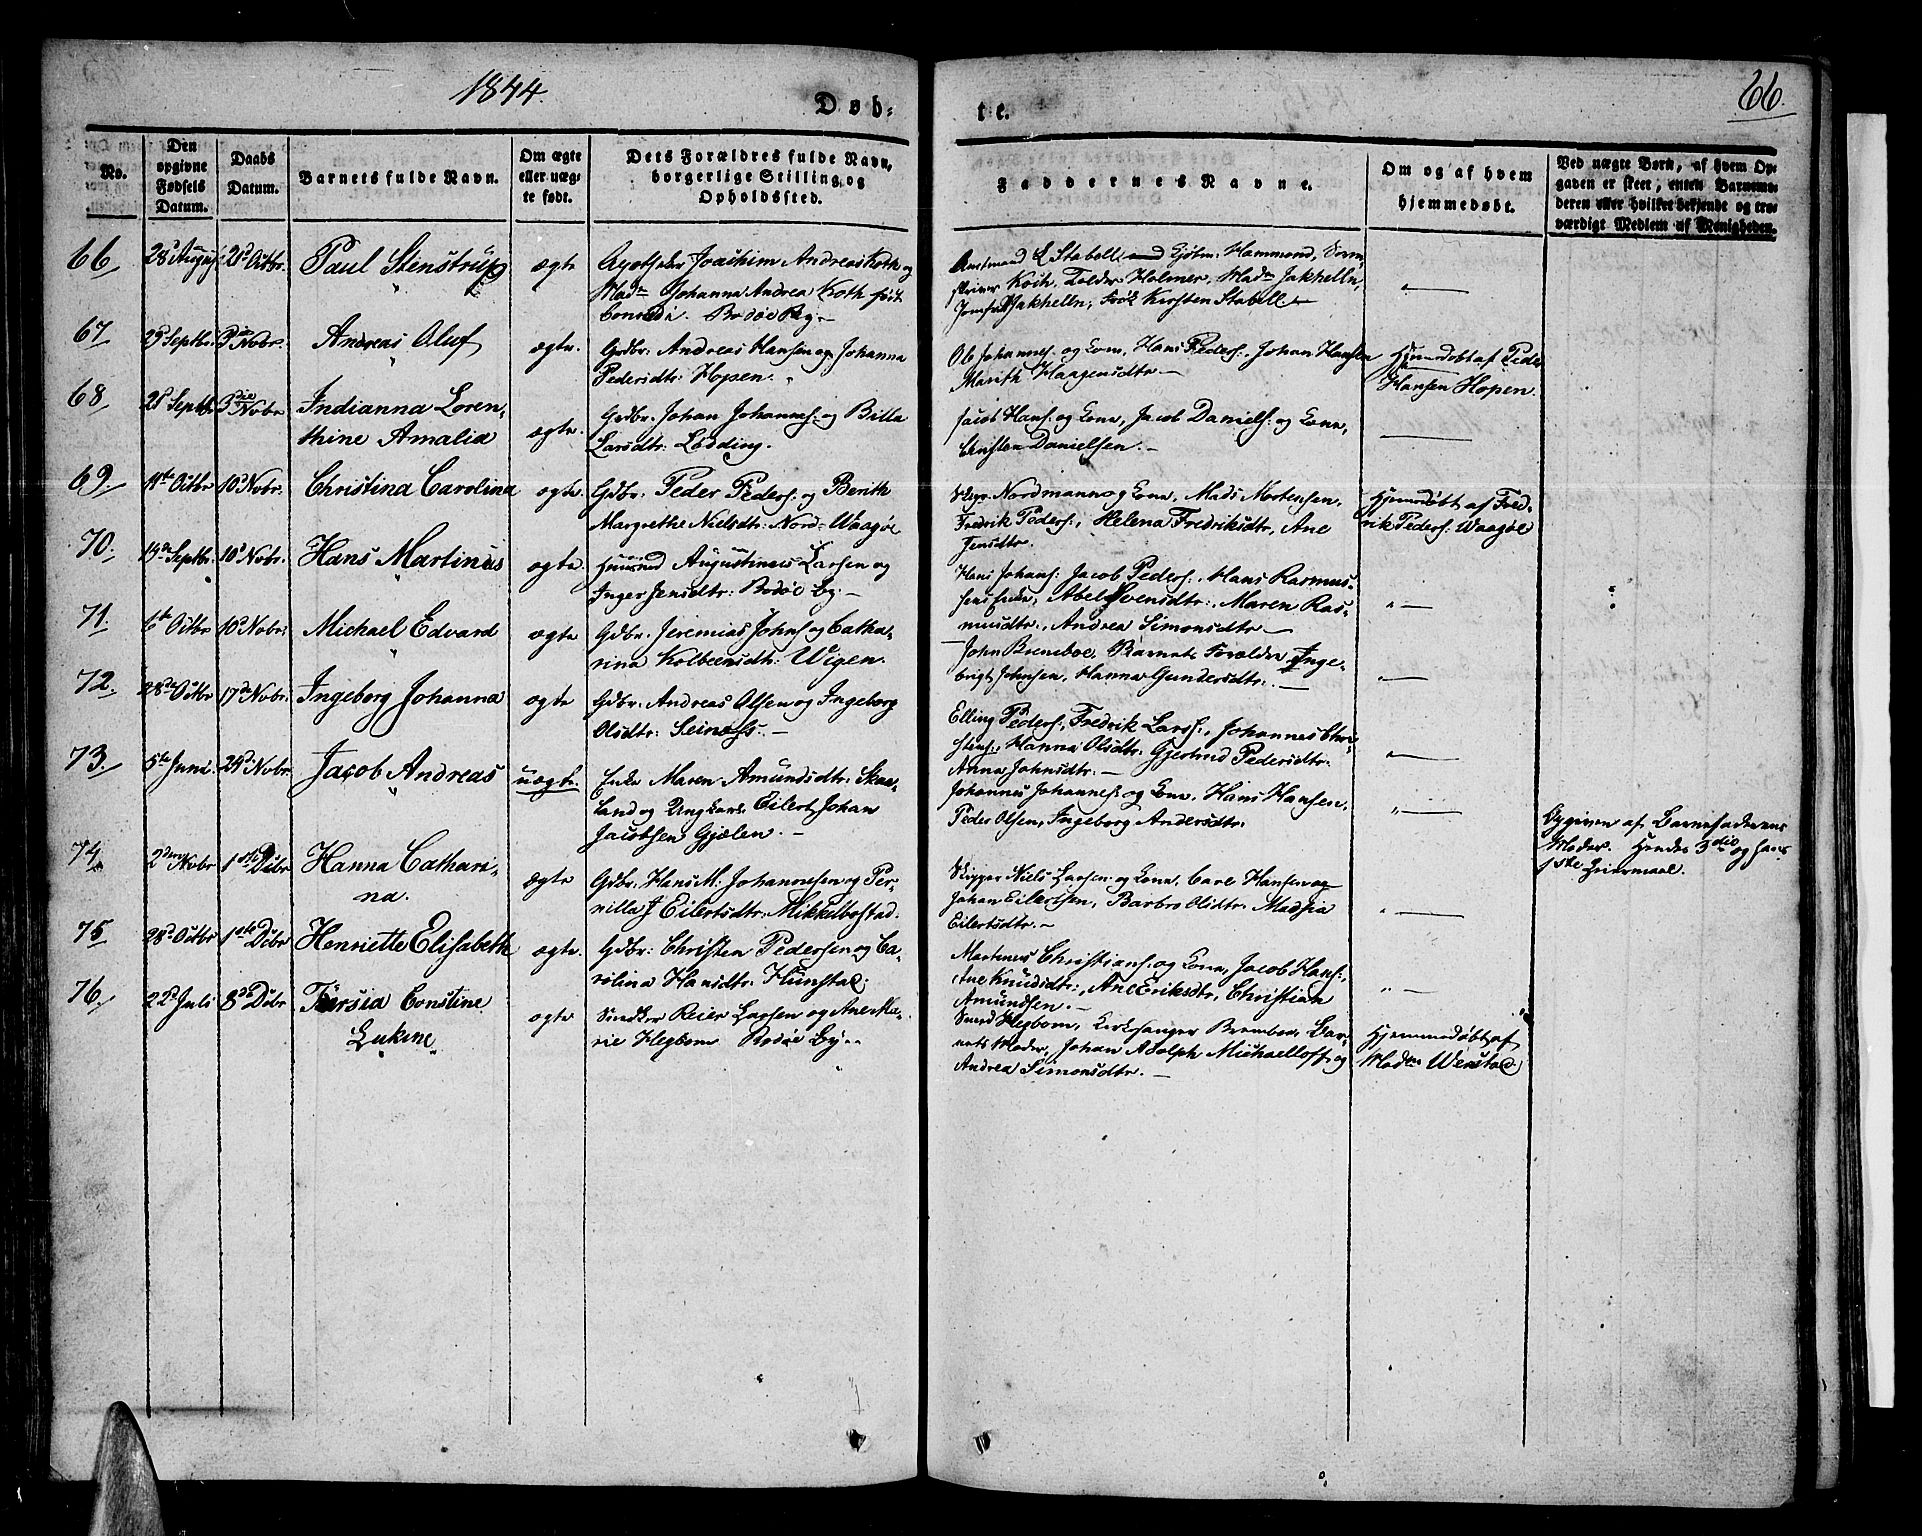 1844.
66.
Døb-
te.
No.
Den opgivne Fødsels Datum.
Daabs Datum.
Barnets fulde Navn.
Om ægte eller uægte født.
Dets Forældres fulde Navn, borgerlige Stilling, og Opholdssted.
Faddernes Navne.
Om og af hvem hjemmedøbt.
Ved uægte Børn, af hvem Opgaven er skeet, enten Barnemoderen eller hvilket bekjendt og troværdigt Medlem af Menigheden.
66 28de August 21de Octbr. Paul Stenstrup ægte Apotheker Joachim Andreas Koth og
Madm Johanna Andrea Koth født
Conradi. Bodøe By.
Amtmand Stabell Hammond,
Koch, Tolder Holmer, Madm Jakhelln,
Jomfru Jakhelln, Frk Kirsten Stabell
67 Septbr. 3die Novbr. Andreas Oluf ægte. Gdbr: Andreas Hansen og Johanna
Pedersdtr: Hopen.
Ole Johannes: og Kone, Hans Peders:, Johan Hansen
Marith Haagensdtr
Hjemmedøbt af Peder
Hansen Hopen.
68. 28 Septbr 3die Novbr Indianna Loren-
thine Amalia ægte. Gdbr. Johan Johannes: og Britta
Larsdtr: Lødding.
Jacob Hans: og Kone, Jacob Daniels: og Kone,
Danielsen.
69. 11te Octbr 10de Nobr. Christina Carolina ægte. Gdbr: Peder Peders: og Berith
Margrethe Nielsdtr: Nord-Waagøe
Nordmann og Kone, Mads Mortensen,
Fredrik Peders:, Helena Fredriksdtr, Ane
Jensdtr.
Hjemmedøbt af Fred-
rik Peders: Waagøe
70. Septbr. 10de Novbr. Hans Martinus ægte Huusmd Augustinus Larsen og
Inger Jensdtr: Bodøe By.
Hans Johans: Jacob Peders:, Hans Rasmus-
sens Enke, Abel Svensdtr:, Maren Ras-
musdtr:, Andrea Simonsdtr
71. 6te Octbr 10de Nobr: Michael Edvard ægte Gdbr. Jeremias Johns: og Catha-
rina Kolbeensdtr: Wigen.
John Bremboe, Barnets Forælder, Inge-
brigt Johnsen, Hanna Gundersdtr:
72. 28de Octbr 17de Nobr. Ingeborg Johanna ægte Gdbr: Andreas Olsen og Ingeborg
Olsdtr: Seinæss.
Elling Peders:, Fredrik Lars:, Johannes Chri-
stens:, Hanna Olsdtr: Gjertrud Pedersdtr:
Anna Johnsdtr:
73. 5te Juni. 24de Nobr Jacob Andreas uægte. Enke Maren Amundsdtr: Skaa-
land og Ungkarl Eilert Johan
Jacobsen Gjælen.
Johannes Johannes: og Kone, Hans Hansen,
Peder Olsen, Ingeborg Andersdtr:
Opgiven af Barnefaderens
Moder. Hendes 3die og hans
1ste Leiermaal.
74. 2den Nobr 1ste Dcbr Hanna Cathari-
na. ægte Gdbr: Hans M: Johannesen og Per-
nilla J Eilertsdtr, Mikkelbostad.
Skipper Niels Larsen og Kone, Carl Hansen og
Johan Eilertsen, Barbro Olsdtr: Madsia
Eilertsdtr.
75 28de Octbr 1ste Dcbr Henriette Elisabeth ægte. Gdbr: Christen Pedersen og Ca-
rolina Hansdtr: Hunstad.
Martinus Christians: og Kone, Jacob Hans:,
Ane Knudsdtr:, Ane Eriksdtr, Christian
Amundsen.
76. 22de Juli 8de Dcbr Thersia Constine
Lukine ægte Snedker Reier Larsen og Ane Ma-
rie Hegbom Bodøe By.
Hegbom, Kirkesanger Bremboe, Bar-
nets Moder, Johan Adolph Michaelloff og
Andrea Simonsdtr.
Hjemmedøbt af
Madm Wenstad